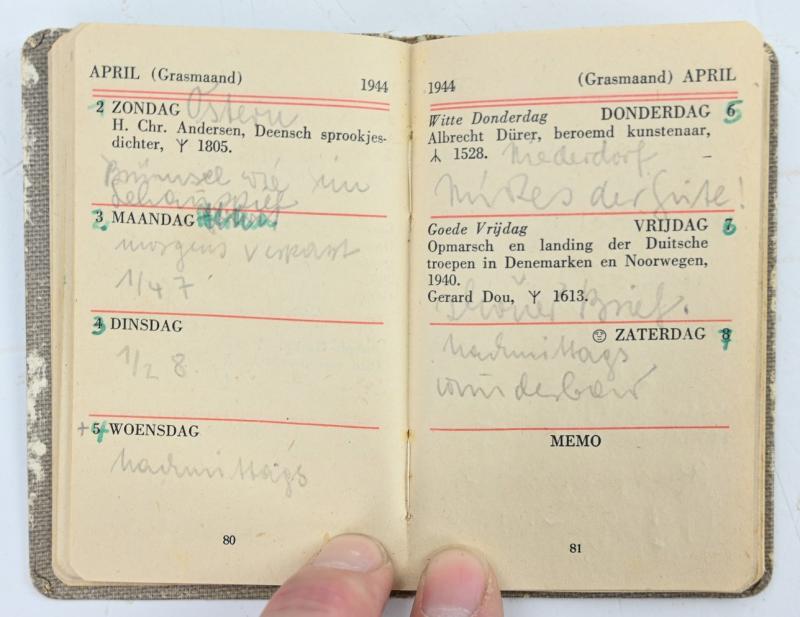 APRIL (Grasmaand) 1944
2 ZONDAG Ostern
H. Chr. Andersen, Deensch sprookjes-
dichter, ᛉ 1805.
wie
3 MAANDAG
2
morgens verpasst
1/4 7
4 DINSDAG
3
1/2 8
+5 WOENSDAG
4
Nachmittags
80
1944 (Grasmaand) APRIL
Witte Donderdag DONDERDAG 6
5
Albrecht Dürer, beroemd kunstenaar,
ᛣ 1528. Niederdorf
der Güte!
Goede Vrijdag VRIJDAG 7
6
Opmarsch en landing der Duitsche
troepen in Denemarken en Noorwegen,
1940.
Gerard Dou, ᛉ 1613.
schöner Brief.
ZATERDAG 8
7
Nachmittags
wunderbar
MEMO
81